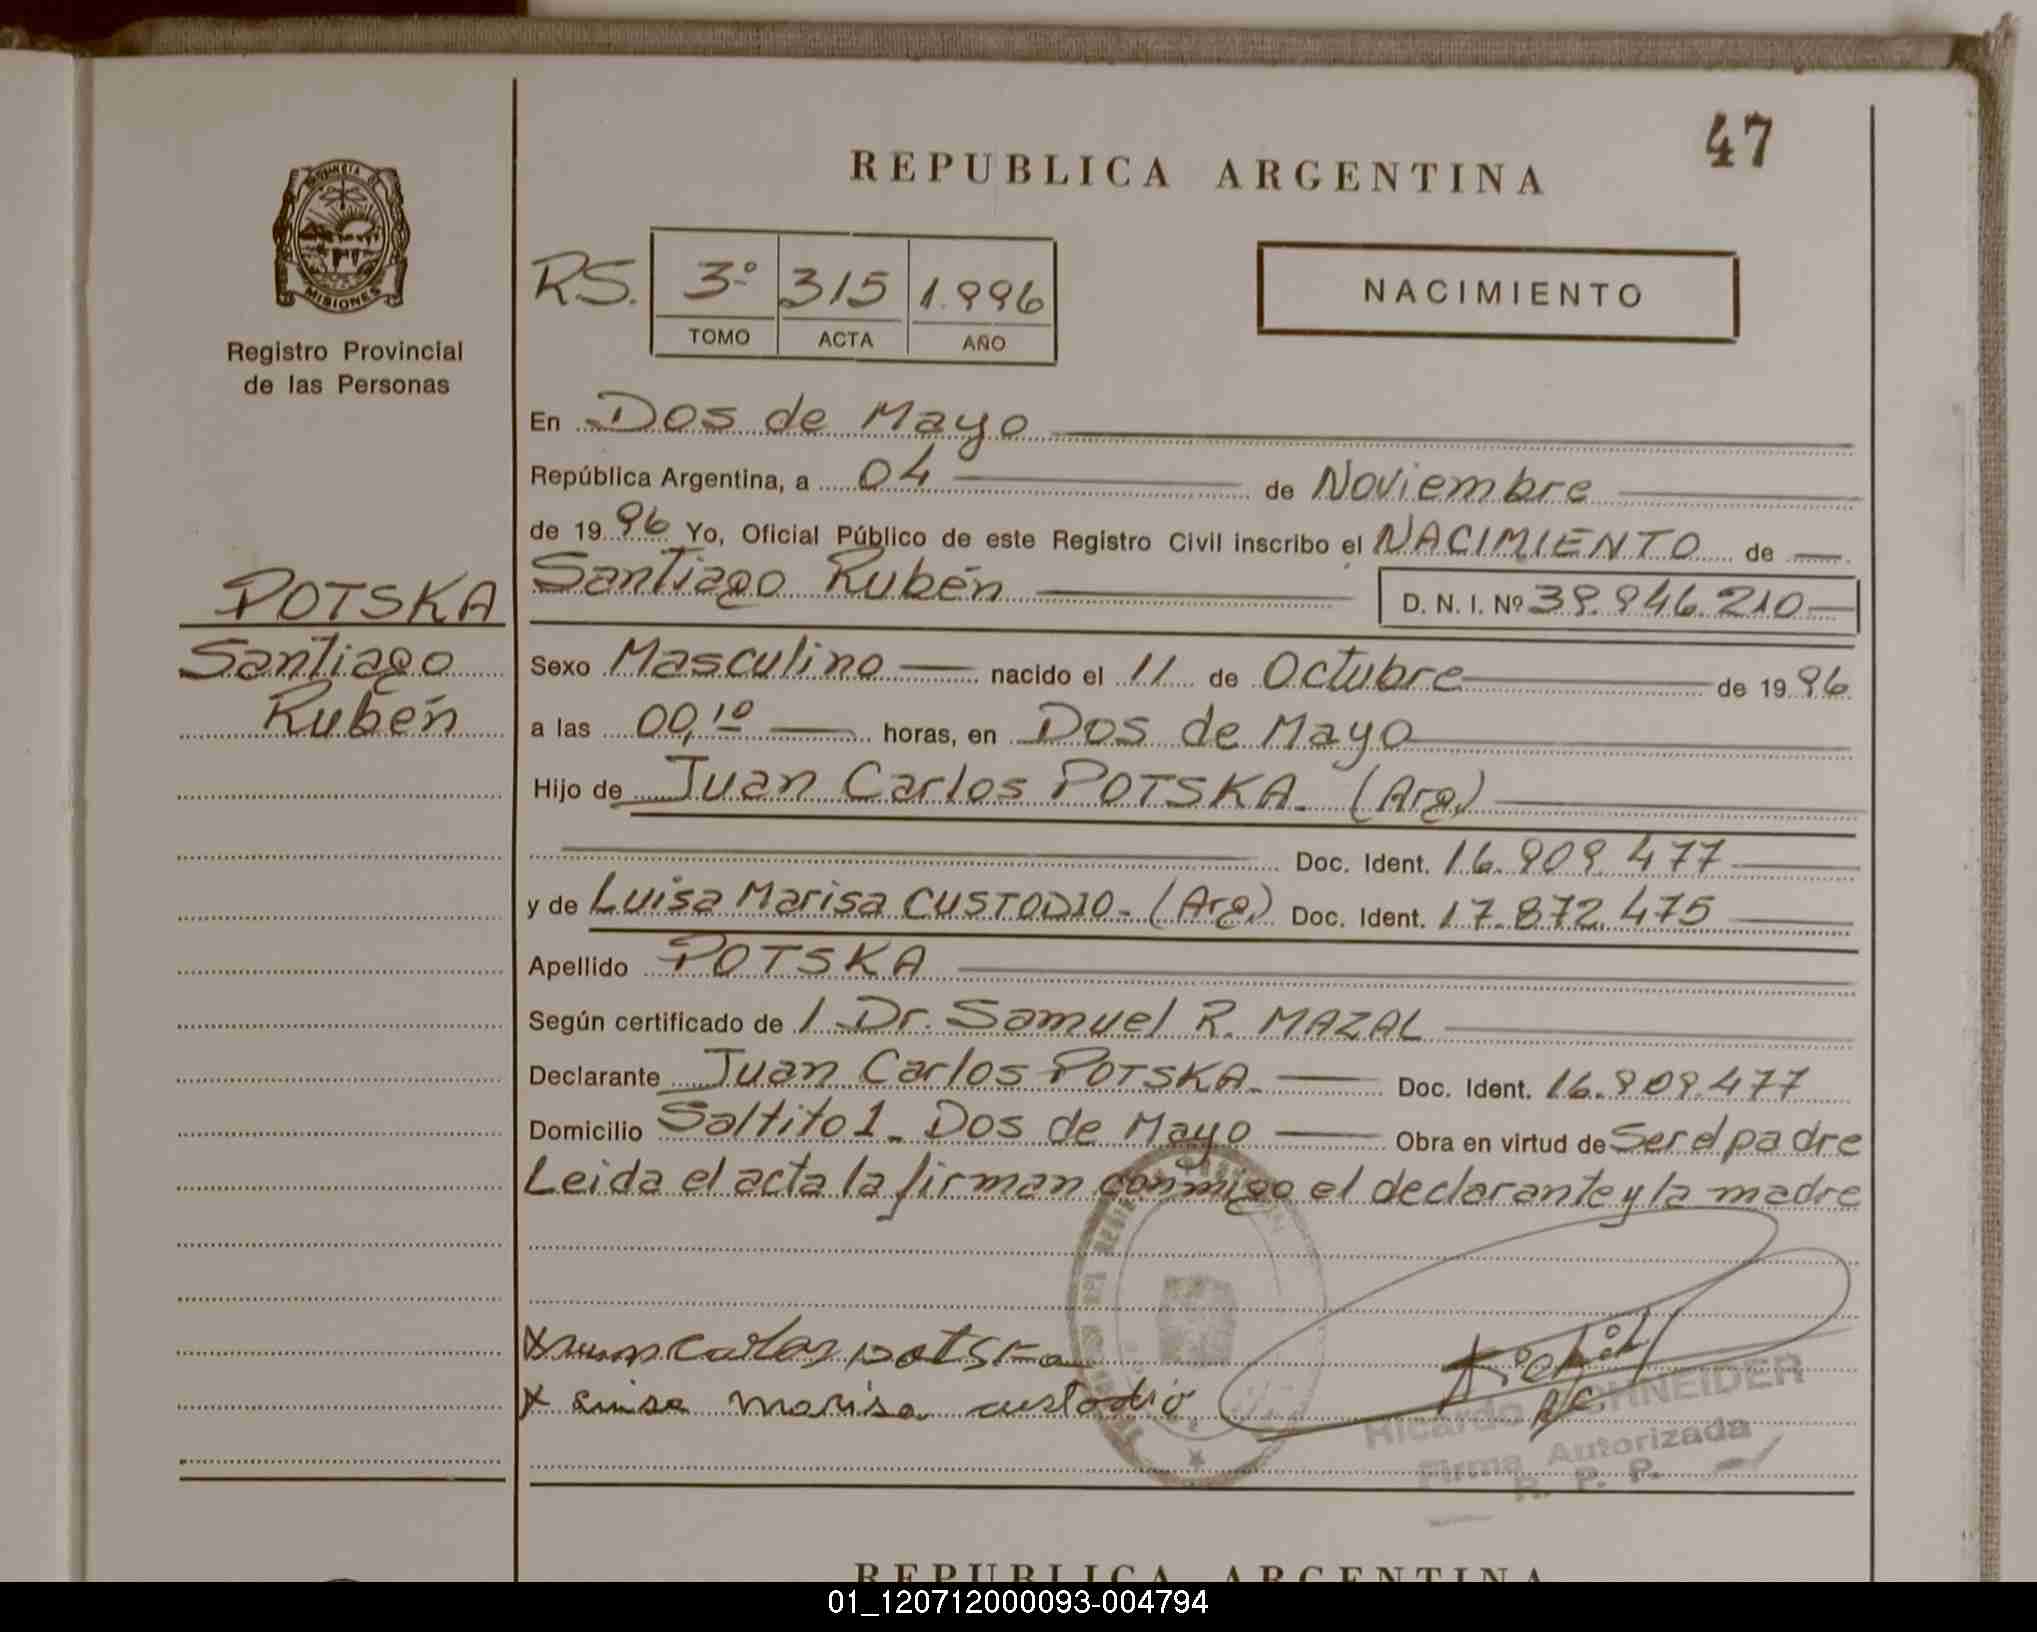 47
REPUBLICA ARGENTINA
PROVINCIA DE
MISIONES
Registro Provincial
de las Personas
RS. 3º 315 1.996
TOMO ACTA AÑO
NACIMIENTO
En Dos de Mayo
República Argentina, a 04 de Noviembre
de 1996 Yo, Oficial Público de este Registro Civil inscribo el NACIMIENTO de
POTSKA
Santiago
Rubén
Santiago Rubén D. N. I. Nº 39.946.210
Sexo Masculino nacido el 11 de Octubre de 1996
a las 00,10 horas, en Dos de Mayo
Hijo de Juan Carlos POTSKA. (Arg)
Doc. Ident. 16.909.477
y de Luisa Marisa CUSTODIO. (Arg) Doc. Ident. 17.872.475
Apellido POTSKA
Según certificado de 1 Dr. Samuel R. MAZAL
Declarante Juan Carlos POTSKA. Doc. Ident. 16.909.477
Domicilio Saltito 1. Dos de Mayo Obra en virtud de Ser el padre
Leida el acta la firman conmigo el declarante y la madre
x Juan Carlos potska
x Luisa marisa custodio
Ricardo SCHNEIDER
Firma Autorizada
R. P. P.
REPUBLICA ARGENTINA
01_120712000093-004794